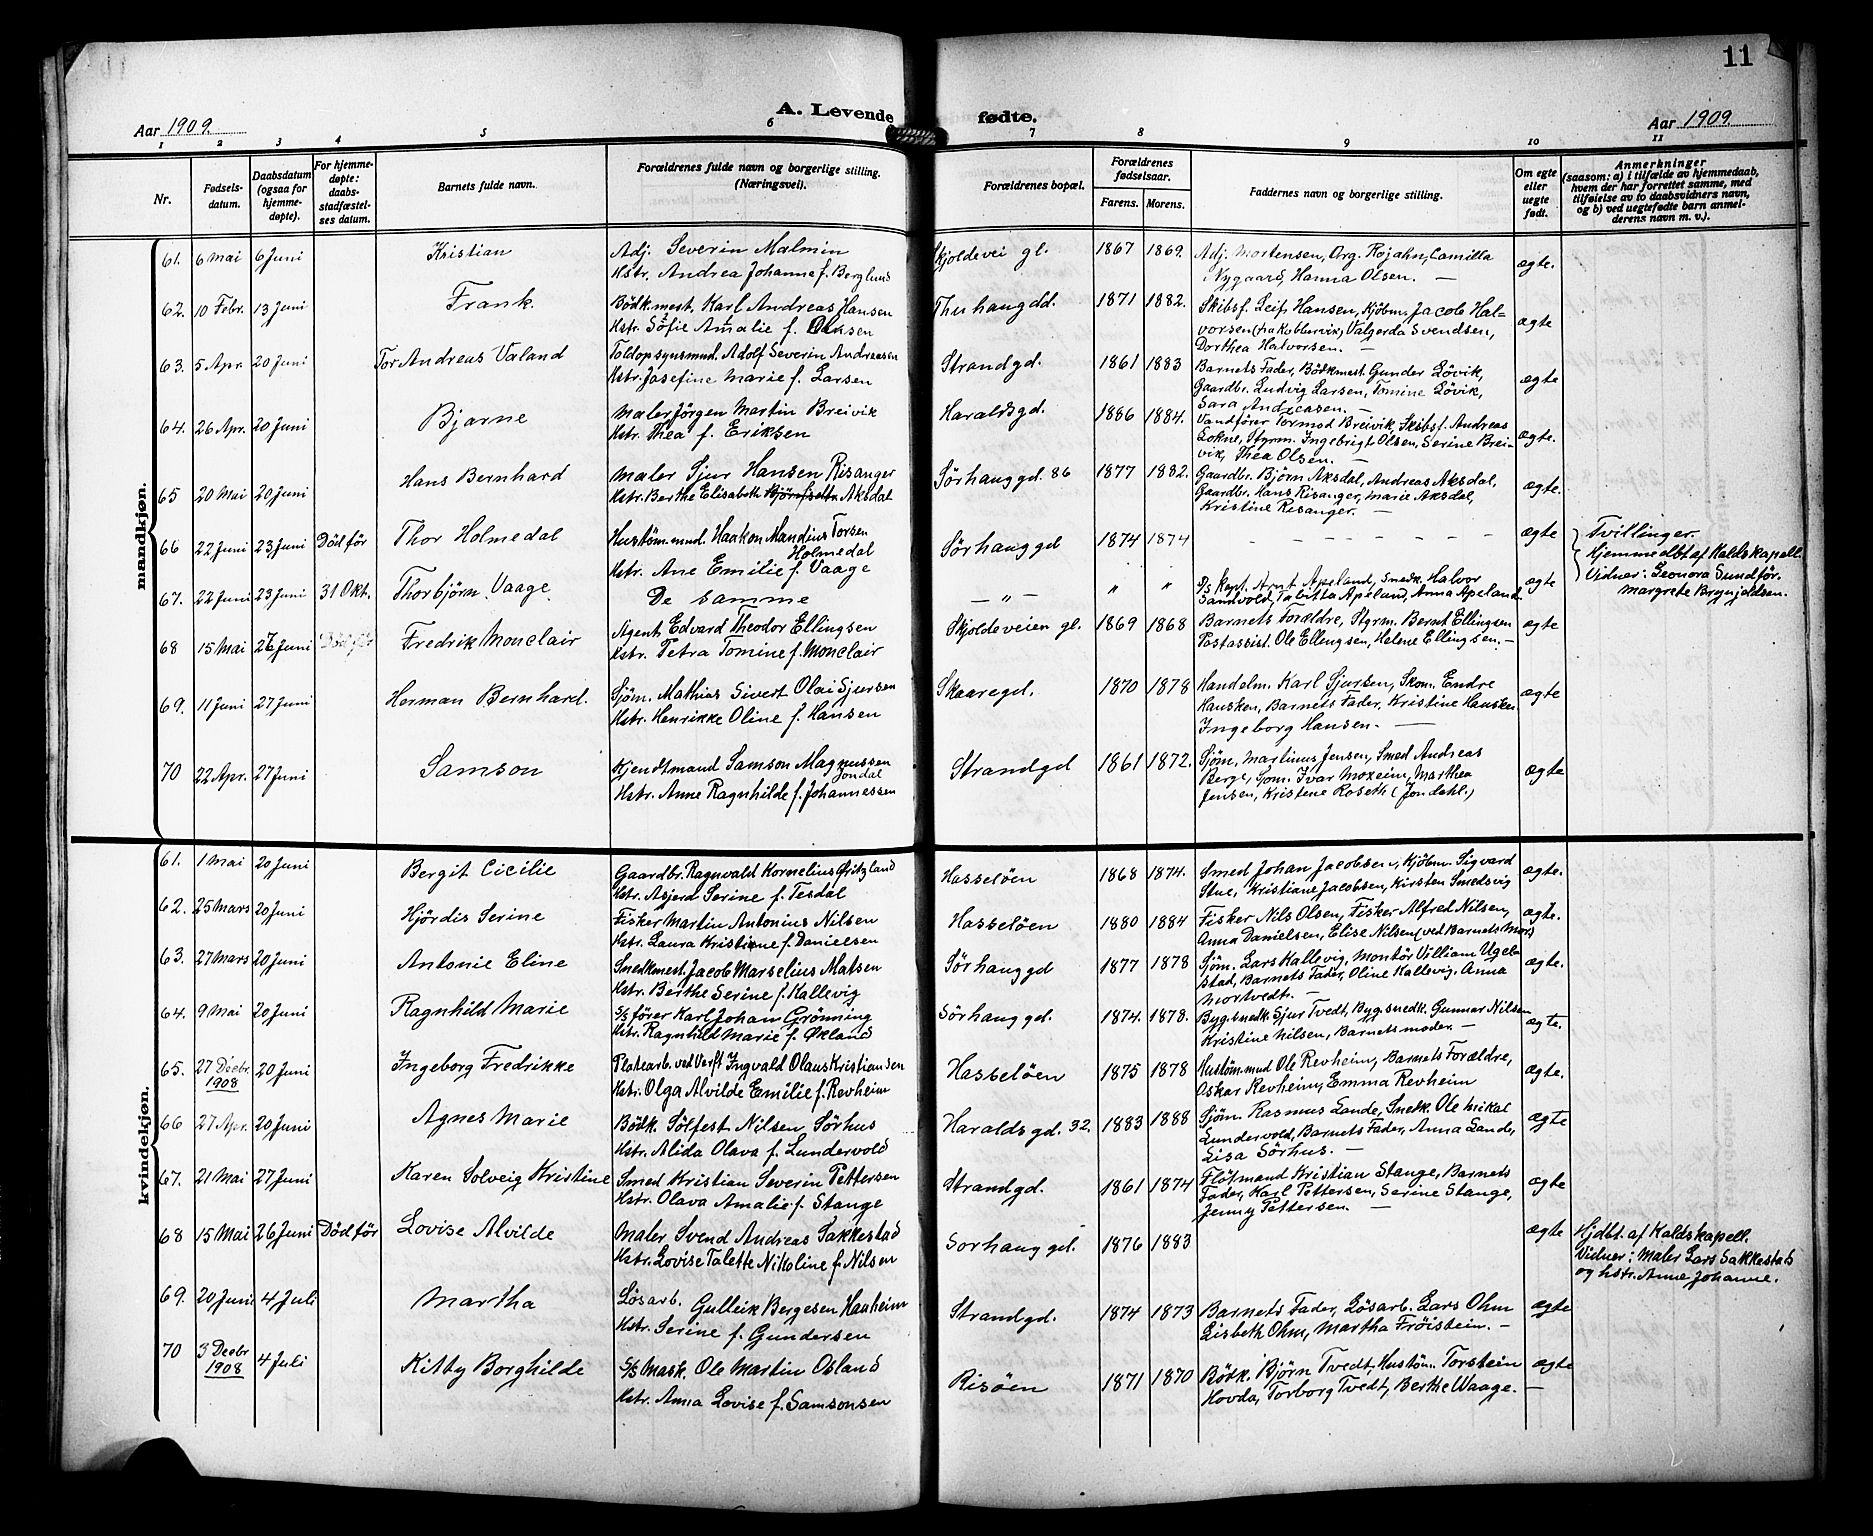 11
A. Levende fødte.
Aar 1909.
Aar 1909.
1 2 3 4 5 6 7 8 9 10 11
Nr.
Fødsels-
datum.
Daabsdatum
(ogsaa for
hjemme-
døpte).
For hjemme-
døpte:
daabs-
stadfæstel-
ses datum.
Barnets fulde navn.
Forældrenes fulde navn og borgerlige stilling.
(Næringsvei).
Forældrenes bopæl.
Forældrenes
fødselsaar.
Farens. Morens.
Faddernes navn og borgerlige stilling.
Om egte
eller
uegte
født.
Anmerkninger
(saasom: a) i tilfælde av hjemmedaab,
hvem der har forrettet samme, med
tilføielse av to daabsvidners navn,
og b) ved uegtefødte barn anmel-
derens navn m. v.).
mandkjøn.
61. 6 Mai 6 Juni Kristian Adj. Severin Malmin Skjoldevei gl. 1867 1869. Adj. Mortensen, Org. Rojahn, Camilla ægte.
Hstr. Andrea Johanne f. Berglund Nygaard, Hanna Olsen. —
62. 10 Febr. 13 Juni Frank Bödk.mest. Karl Andreas Hansen Thuhauggd. 1871 1882. Skibsf. Leif Hansen, Kjöbm. Jacob Hal- ægte
Hstr. Sofie Amalie f. Olsen vorsen (fra Kobbervik), Valgerda Svendsen,
Dorthea Halvorsen. —
63. 5 Apr. 20 Juni Tor Andreas Valand Toldopsynsmnd. Adolf Severin Andreasen Strandgd. 1861 1883 Barnets Fader, Bödkmest. Gunder Lövik, ægte
Hstr. Josefine Marie f. Larsen Gaardbr. Ludvig Larsen, Tomine Lövik,
Sara Andreasen. —
64. 26 Apr. 20 Juni Bjarne Maler Jörgen Martin Breivik Haraldsgd. 1886 1884. Vandförer Tormod Breivik, Skibsf. Andreas ægte.
Hstr. Thea f. Eriksen Lokne, Styrm. Ingebrigt Olsen, Serine Brei-
vik, Thea Olsen. —
65 20 Mai 20 Juni Hans Bernhard Maler Sjur Hansen Risanger Sørhauggd. 86 1877 1882. Gaardbr. Björn Aksdal, Andreas Aksdal, ægte.
Hstr. Berthe Elisabeth Aksdal Gaardbr. Hans Risanger, Marie Aksdal,
Kristine Risanger. —
66 22 Juni 23 Juni Död för Thor Holmedal Hustöm.mnd. Haakon Mandius Torsen Sørhauggd 1874 1874 — — — — — — ægte Tvillinger.
Holmedal Hjemmedbt af Kaldskapell.
Hstr. Ane Emilie f. Vaage Vidner: Leonora Sundför.
67. 22 Juni 23 Juni 31 Okt. Thorbjörn Vaage De samme — " — " " S/s Kapt. Arnt Apeland, Snedk. Halvor ægte Margrete Brynjeldsen.
Sandvold, Tabitta Apeland, Anna Apeland
68 15 Mai 27 Juni Fredrik Monclair Agent Edvard Theodor Ellingsen Skjoldeveien gl. 1869 1868 Barnets Foreldre, Styrm. Bernt Ellingsen ægte
Hstr. Petra Tomine f. Monclair Postassist. Ole Ellingsen, Helene Ellingsen. —
69. 11 Juni 27 Juni Herman Bernhard. Sjöm. Mathias Sivert Olai Sjursen Skaaregd. 1870 1878 Handelm. Karl Sjursen, Skom. Endre ægte
Hstr. Henrikke Oline f. Hansen Hausken, Barnets Fader, Kristine Hausken
Ingeborg Hansen. —
70 22 Apr. 27 Juni Samson Kjendtmand Samson Magnussen Strandgd 1861 1872. Sjöm. Martinus Jensen, Smed Andreas ægte
Jondal Berge, Sjöm. Ivar Moxeim, Marthea
Hstr. Anne Ragnhilde f. Johannessen Jensen, Kristene Roseth (Jondahl.)
kvindekjøn.
61. 1 Mai 20 Juni Bergit Cicilie Gaardbr. Ragnvald Kornelius Fritzland Hasseløen 1868 1874. Smed Johan Jacobsen, Kjöbm. Sigvard ægte.
Hstr. Asjerd Serine f. Tesdal Stue, Kristiane Jacobsen, Kirsten Smedsvig
62. 25 Mars 20 Juni Hjördis Serine Fisker Martin Antonius Nilsen Hasseløen 1880 1884 Fisker Nils Olsen, Fisker Alfred Nilsen, ægte.
Hstr. Laura Kristiene f. Danielsen Anna Danielsen, Elise Nilsen (ved Barnets Mor)
63. 27 Mars 20 Juni Antonie Eline Smedkmest. Jacob Marselius Matsen Sørhauggd 1877 1878 Sjöm. Lars Kallevig, Montör Villiam Ugel- ægte.
Hstr. Berthe Serine f. Kallevig stad, Barnets Fader, Oline Kallevig, Anna
Mortvedt. —
64. 9 Mai 20 Juni Ragnhild Marie S/s förer Karl Johan Grönning Sørhauggd. 1874. 1878. Bygsnedk. Sjur Tvedt, Bygsnedk. Gunnar Nilsen ægte.
Hstr. Ragnhild Marie f. Økland Kristine Nilsen, Barnets moder. —
65. 27 Decbr. 1908 20 Juni Ingeborg Fredrikke Platearb. ved Verft Ingvald Olaus Kristiansen Hasseløen 1875 1878 Hustöm.mnd Ole Revheim, Barnets Forældre, ægte.
Hstr. Olga Alvilde Emilie f. Revheim Oskar Revheim, Emma Revheim
66 27 Apr. 20 Juni Agnes Marie Bödk. Sölfest Nilsen Sörhus Haraldsgd. 32. 1883 1888 Sjöm. Rasmus Lande, Snedk. Ole Mikal ægte
Hstr. Alida Olava f. Lundervold Lundervold, Barnets Fader, Anna Lande,
Lisa Sörhus. —
67. 21 Mai 27 Juni Karen Solveig Kristine Smed Kristian Severin Pettersen Strandgd. 1861 1874 Flötmand Kristian Stange, Barnets ægte
Hstr. Olava Amalie f. Stange Fader, Karl Pettersen, Serine Stange,
Jenny Pettersen. —
68 15 Mai 26 Juni Död för Lovise Alvilde Maler Svend Andreas Sakkestad Sørhauggd. 1876 1883 ægte Hjdbt. af Kaldskapell.
Hstr. Lovise Talette Nikoline f. Nilsen Vidner: Maler Lars Sakkestad
og hstr. Anne Johanne.
69. 20 Juni 4 Juli Martha Løsarb. Gulleik Bergesen Hauheim Strandgd. 1874 1873 Barnets Fader, Lösarb. Lars Ohm ægte
Hstr. Serine f. Gundersen Lisbeth Ohm, Martha Fröistein. —
70 3 Decbr 1908 4 Juli Kitty Borghilde S/s Mask. Ole Martin Osland Risøen 1871 1870 Bödk. Björn Tvedt, Hustöm. Torstein ægte
Hstr. Anna Lovise f. Samsonsen Hovda, Torborg Tvedt, Berthe Waage. —